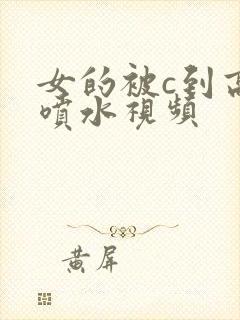 女的被c到高
噴水視頻
黄屏